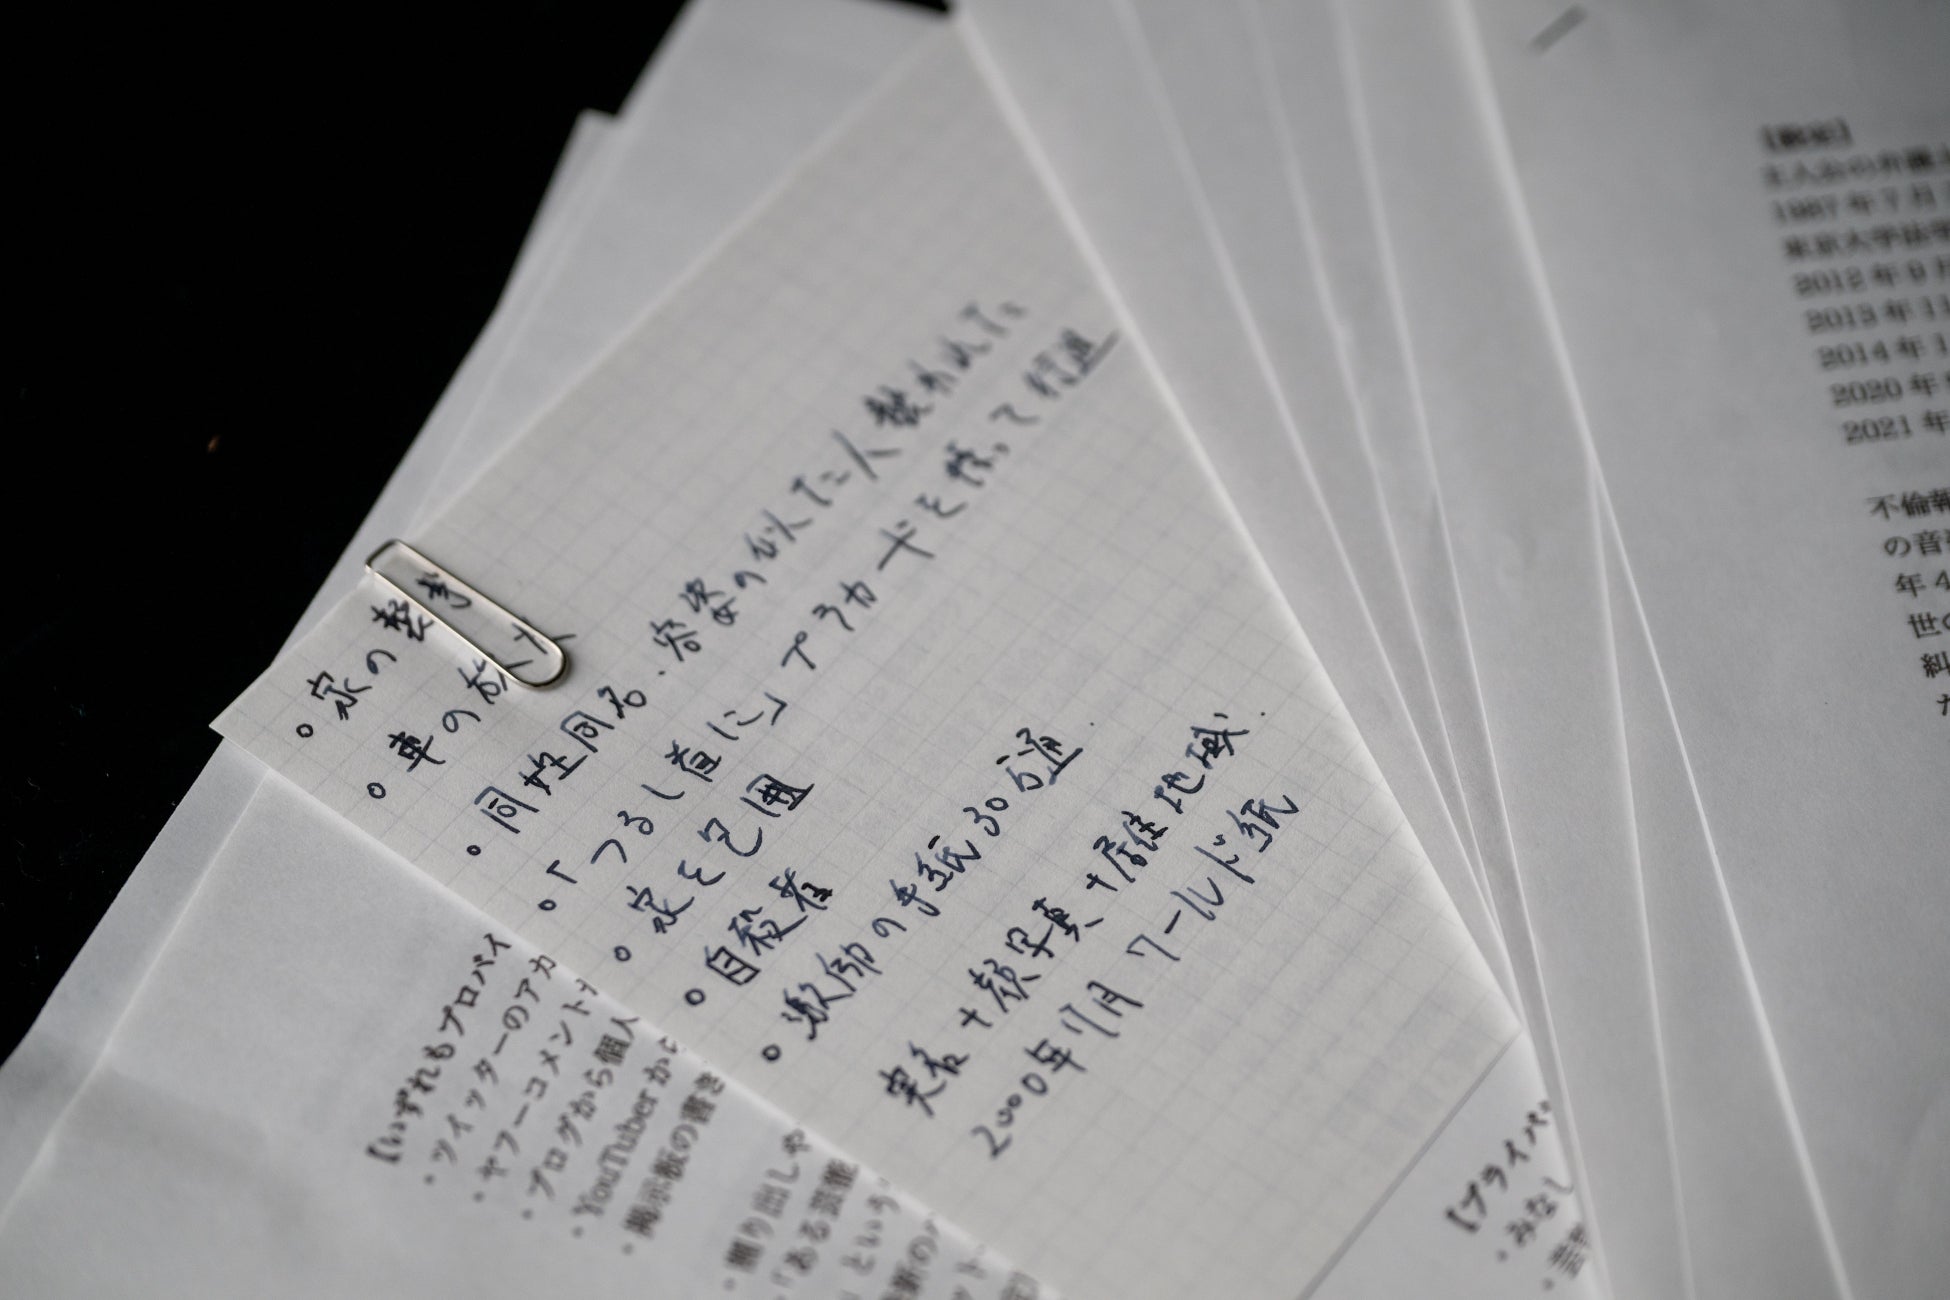 。家の襲撃
。車の放火
。同姓同名、容姿の似た二人襲われてた
。「つるし首に」プラカードを持って行進
。家を包囲
。自殺者
。激励の手紙30万通.
実名+顔写真+居住地域.
2000年7月 ワールド紙
【いずれもプロバイ
・ツイッターのアカ
・ヤフーコメント
・ブログから個人
・YouTuberから
・掲示板の書き
・掘り出しや
「ある芸能
」という
【プライバ
・みなし
主人公の弁護
1987年7月
東京大学法学
2012年9月
2013年11
2014年1
2020年
2021年
不倫報
の音
年4
世の
糾
た